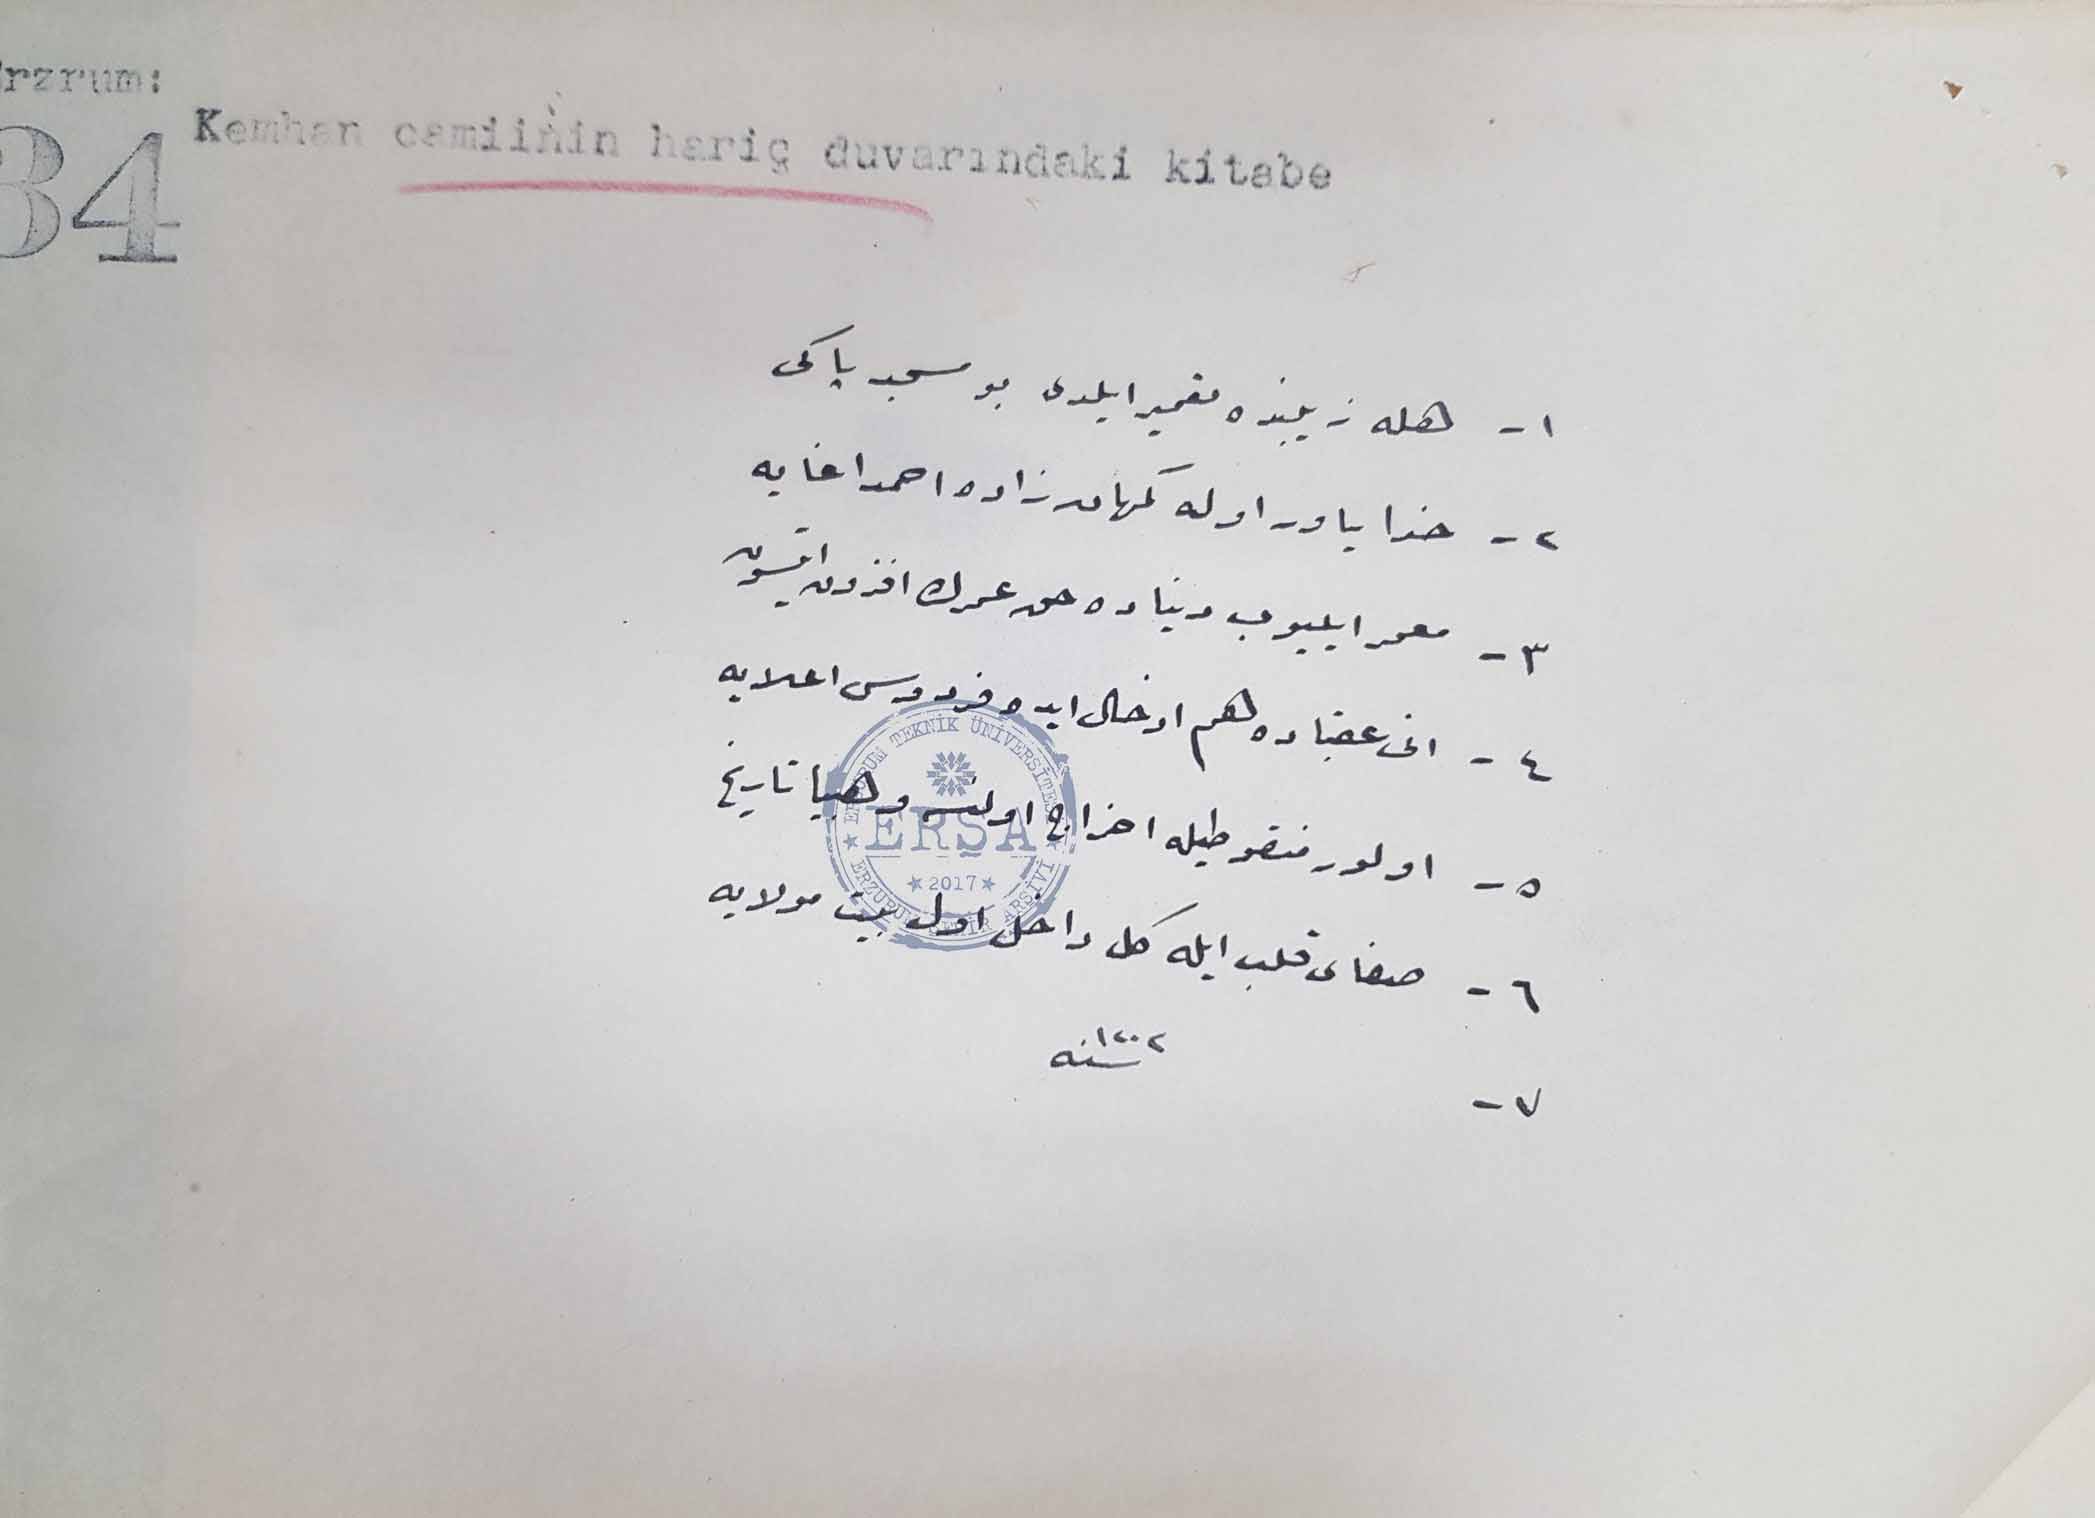 Erzrum:
34
Kemhan camiinin hariç duvarındaki kitabe
١- هله زیبنده تعمیر ایلدی بو مسجد پاکی
٢- خدا یاور اوله کمهان زاده احمد اغایه
٣- معمر ایلیوب دنیاده حق عمرك افزون اتسون
٤- انی عقباده هم ادخال ایده فردوس اعلایه
٥- اولور منقوطیله اخراج اولنسه وهبیا تاریخ
٦- صفای قلب ایله کل داخل اول بیت مولایه
٧- سنه ١٢٠٢
ERZURUM TEKNİK ÜNİVERSİTESİ
ERŞA
2017
ERZURUM ŞEHİR ARŞİVİ